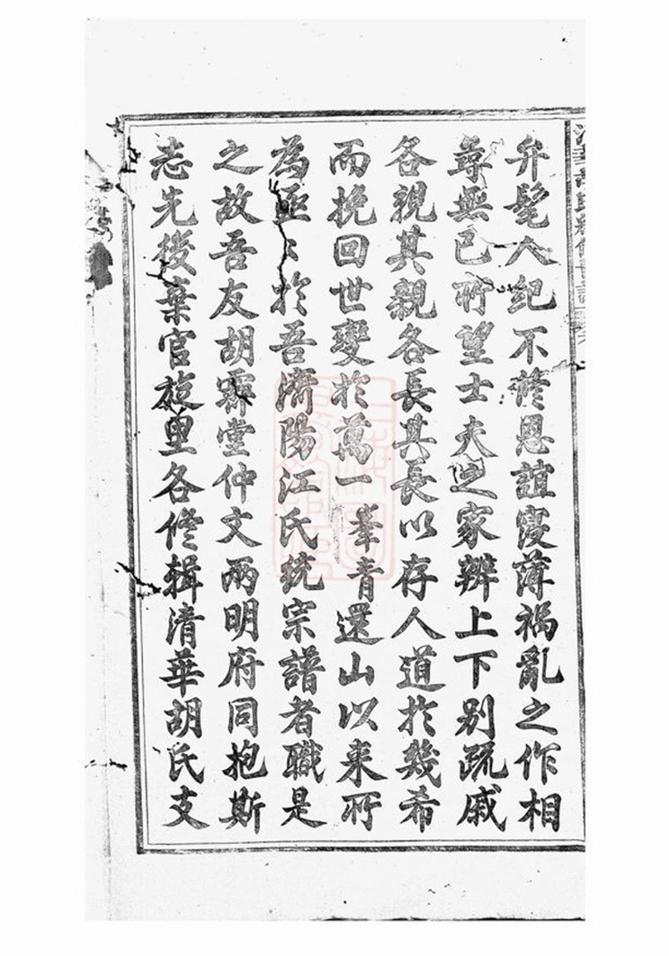 弁髦人纪不修恩誼寖薄禍亂之作相
尋無已所望士夫之家辨上下别疏戚
各親其親各長其長以存人道於幾希
而挽回世變於萬一峯青還山以来所
為亟〻於吾濟陽江氏统宗譜者職是
之故吾友胡霽堂仲文兩明府同抱斯
志先後棄官旋里各修輯清華胡氏支